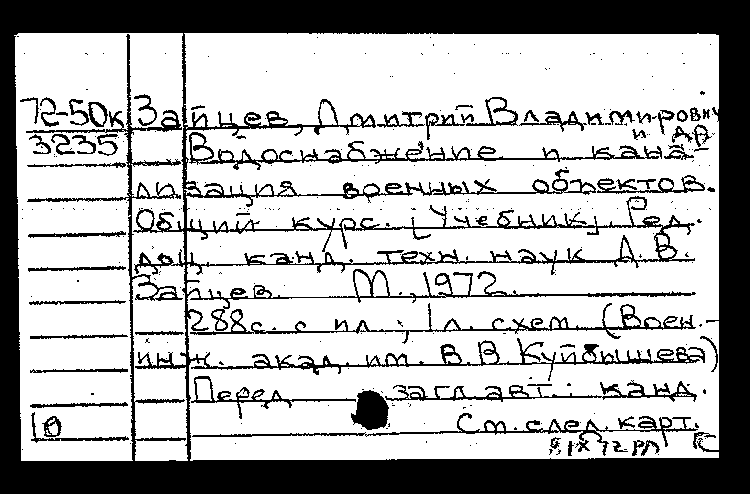 72-50к Зайцев, Дмитрий Владимирович
и др
3235 Водоснабжение и кана-
лизация военных объектов.
Общий курс. [Учебник]. Ред.
доц. канд. техн. наук Д. В.
Зайцев. М., 1972.
288с. с ил.; 1л. схем. (Воен.-
инж. акад. им. В.В Куйбышева)
Перед загл авт.: канд.
10 См. след. карт.
IX 72